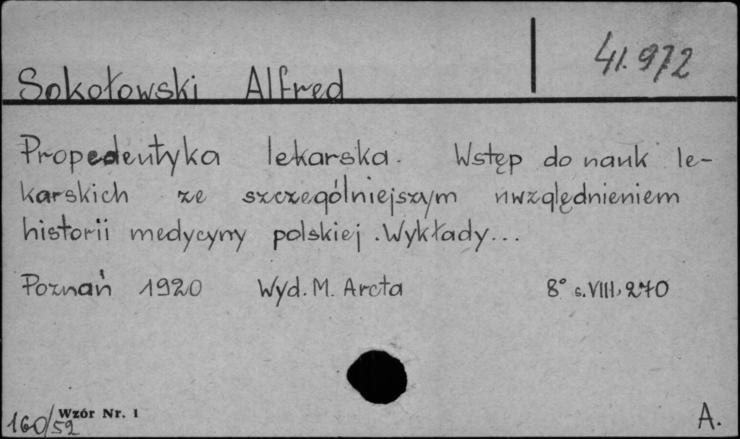 41.972
Sokołowski Alfred
Propedentyka lekarska. Wstęp do nauk le-
karskich ze szczególniejszym uwzględnieniem
historii medycyny polskiej. Wykłady...
Poznań 1920 Wyd. M. Arcta 8° s. VIII, 270
Wzór Nr. 1
160/52
A.